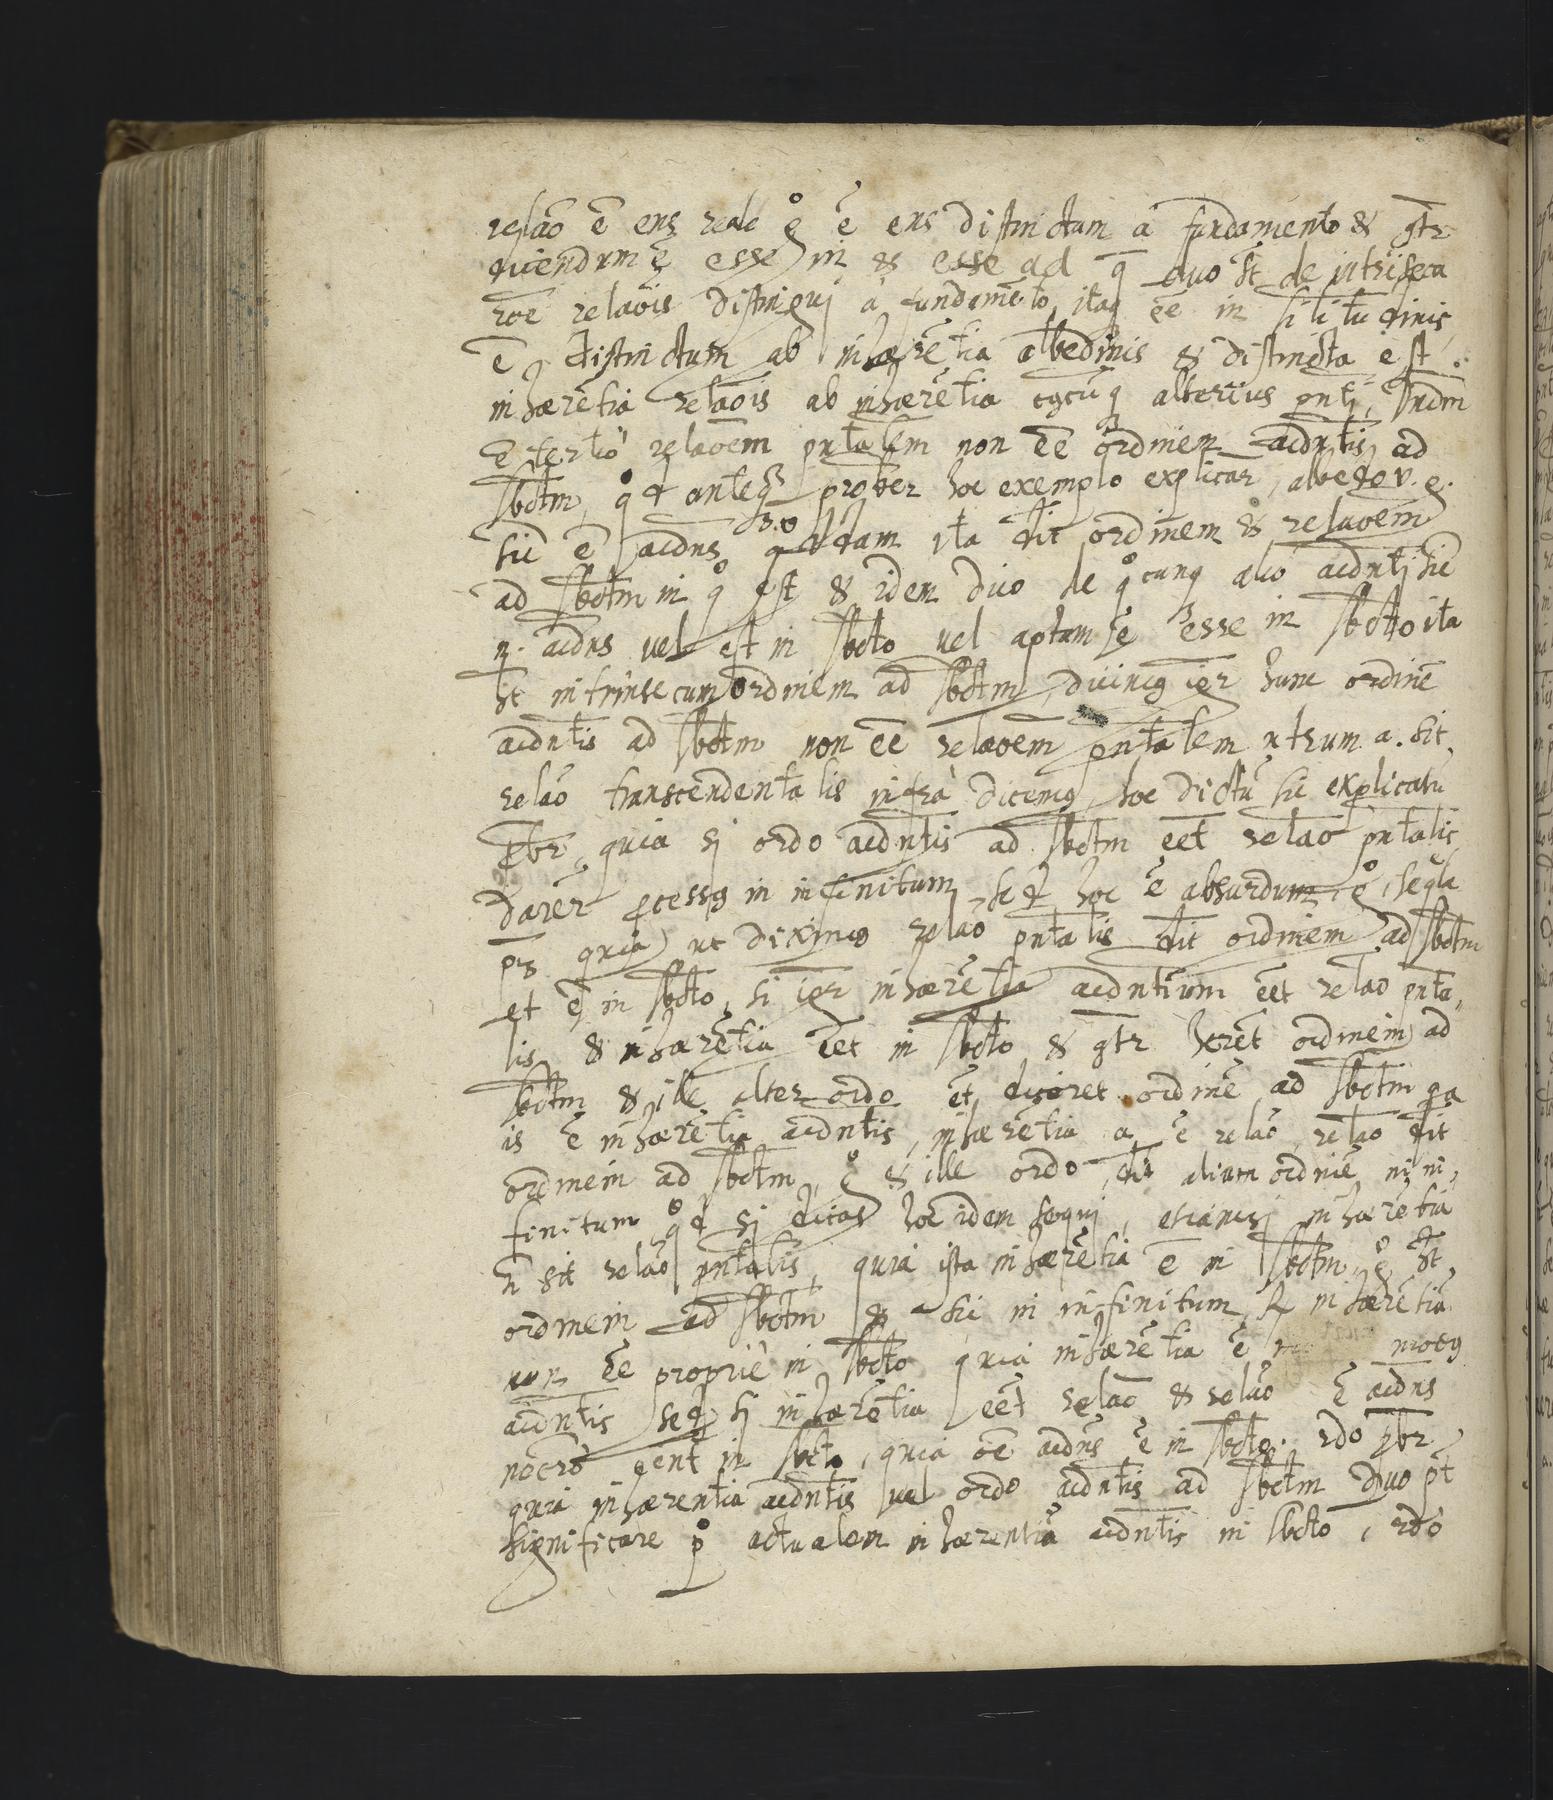 relaõ ẽ ens reale gº ẽ ens distinctum à fundamento & gr̃tr
dicendum ẽ esse in & esse ad q̃ duo st̃ de intriseca
roẽ relaõis distingui à fundamẽto, itaq eẽ in silitudinis
ẽ distinctum ab inhærẽtia albedinis & distincta est
inhærẽtia relaõis ab inhærẽtia cqcũq alterius
ẽ tertiò relaõem pñtalem non eẽ ordinem acidñtis ad
sbctm, qº d anteq̃ prober hoc exemplo explicar, albedo v. g.
sic ẽ acidns quoddam ita dit ordinem & relaoem
ad sbctm in qº est & idem dico de qºcunq alio acidñti sic
n. acidns vel est in sbcto vel aptum ẽ esse in sbcto ita
ht intrinsecum ordinem ad sbctm, dicimq igr hunc ordinẽ
acidñtis ad sbctm non eẽ relaoem pñtalem utrum a. sit
relaõ transcendentalis infrà dicemq, hoc dictũ sic explicatũ
pbr, quia si ordo acidñtis ad sbctm eẽt relaõ pñtalis
darẽr pcessq in infinitum, sed hoc ẽ absurdum, gº, seqla
pz quia ut diximus relaõ pñtalis dit ordinem ad sbctm
et ẽ in sbcto, si igr inhærẽtia acidñtium eẽt relaõ pñta,
lis & inhærẽtia eẽt in sbcto & gr̃tr hẽret ordinem ad
sbctm & ille alter ordo ẽt diceret ordinẽ ad sbctm qa
is ẽ inhærẽtia acidñtis, inhærẽtia a. ẽ relaõ, relaõ dit
ordinem ad sbctm, gº & ille ordo dit alium ordinẽ in in,
finitum qº d si dicas hoc idem sequi, etiamsi inhærẽtia
ñ sit relaõ pñtalis, quia ista inhærẽtia ẽ in sbctm, gº ht
ordinem ad sbctm & sic in infinitum, R inhærẽtiã
non eẽ propriè in sbcto quia inhærẽtia ẽ modq
acidñtis sed si inhærẽtia eẽt relaõ & relaõ ẽ acidns
nocrò eẽnt in sbcto, quia oẽ acidns ẽ in sbcto. 2do pbr
quia inhærentia acidñtis vel ordo acidñtis ad sbctm duo pt
significare pº actualem inhærentiã acidñtis in sbcto, 2dò